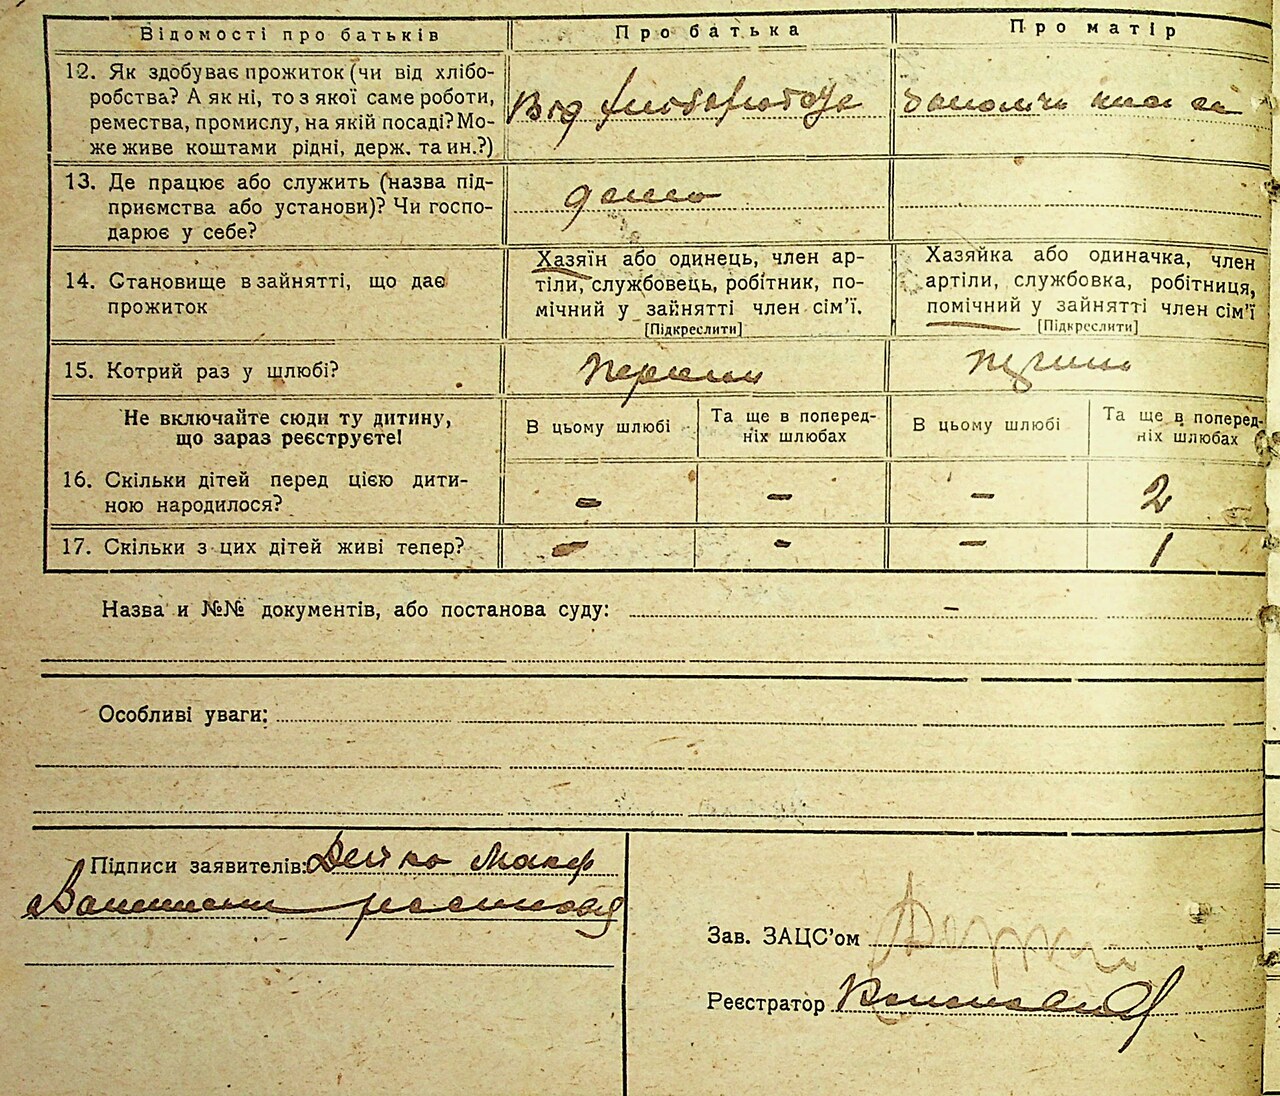 Відомості про батьків
Про батька
Про матір
12. Як здобуває прожиток (чи від хлібо-
робства? А як ні, то з якої саме роботи,
ремества, промислу, на якій посаді? Мо-
же живе коштами рідні, держ. та ин.?)
Від
13. Де працює або служить (назва під-
приємства або установи)? Чи госпо-
дарює у себе?
14. Становище в зайнятті, що дає
прожиток
Хазяїн або одинець, член ар-
тіли, службовець, робітник, по-
мічний у зайнятті член сім'ї.
[Підкреслити]
Хазяйка або одиначка, член
артіли, службовка, робітниця,
помічний у зайнятті член сім'ї
[Підкреслити]
15. Котрий раз у шлюбі?
Не включайте сюди ту дитину,
що зараз реєструєте!
В цьому шлюбі
Та ще в поперед-
ніх шлюбах
В цьому шлюбі
Та ще в поперед-
ніх шлюбах
16. Скільки дітей перед цією дити-
ною народилося?
- - - 2
17. Скільки з цих дітей живі тепер?
- - - 1
Назва и №№ документів, або постанова суду: -
Особливі уваги:
Підписи заявителів: Дейко Макар
Зав. ЗАЦС'ом
Реєстратор